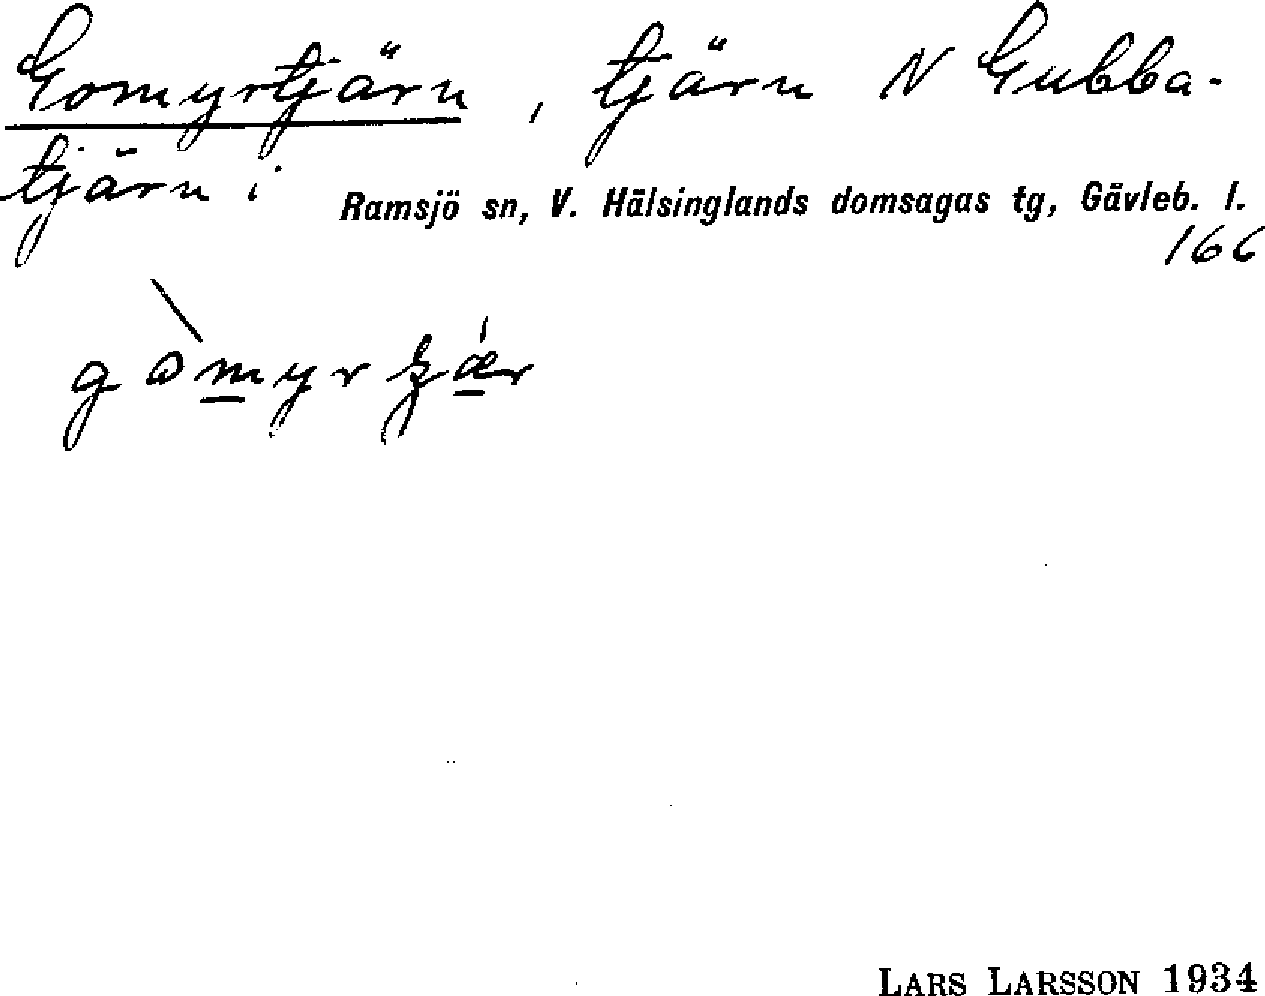 Gomyrtjärn, tjärn N Gubba-
tjärn i Ramsjö sn, V. Hälsinglands domsagas tg, Gävleb. l.
166
LARS LARSSON 1934